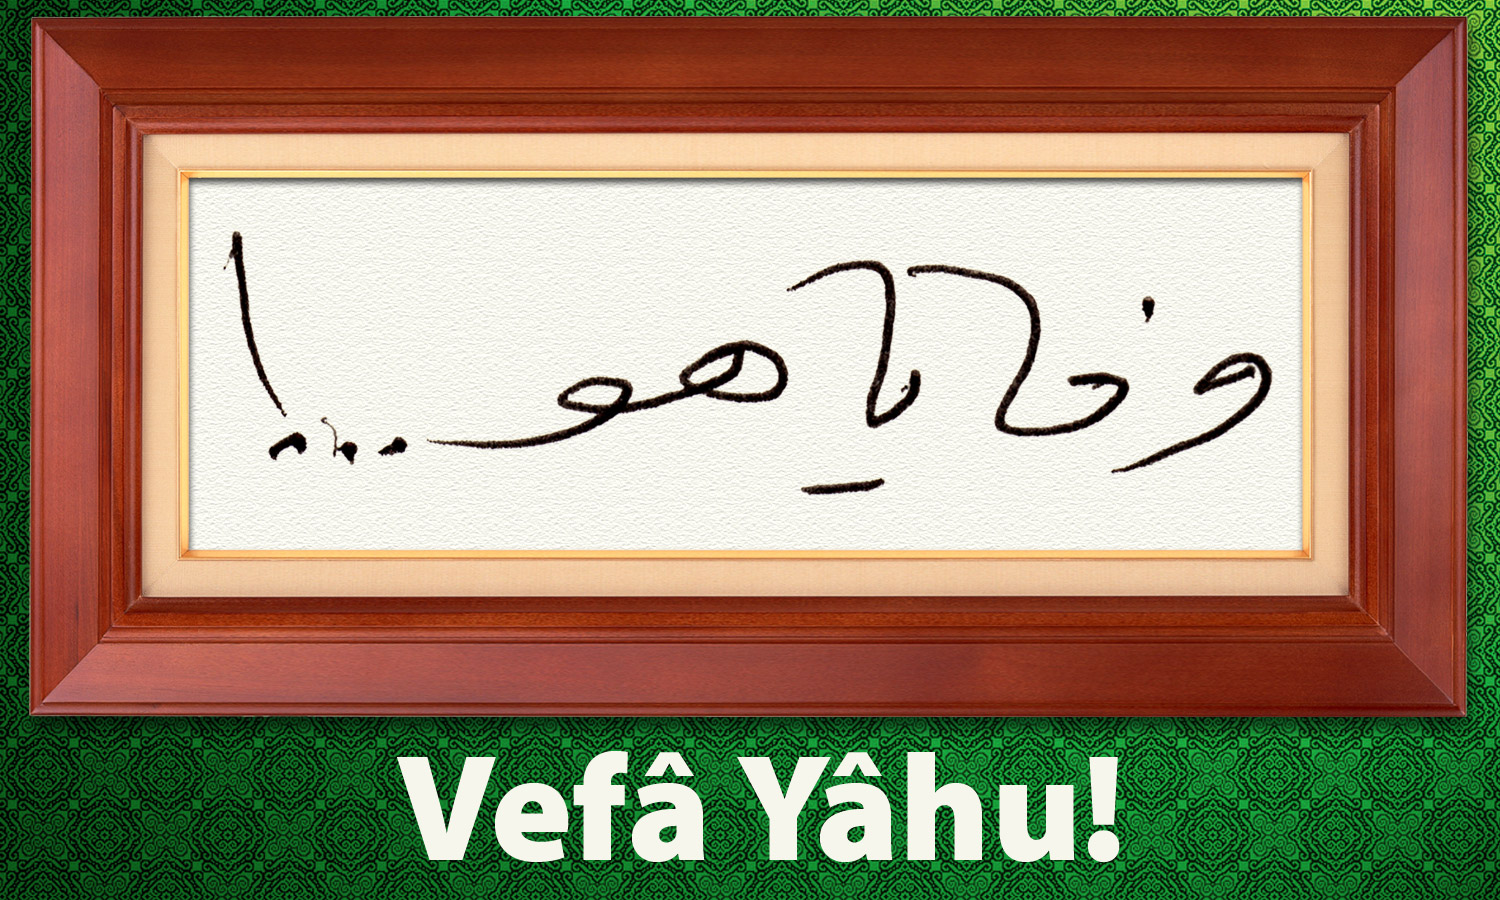 وفا ياهو...!
Vefâ Yâhu!